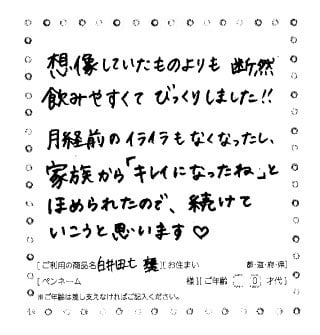 想像していたものよりも 断然
飲みやすくて びっくりしました!!
月経前のイライラもなくなったし、
家族から「キレイになったね」と
ほめられたので、続けて
いこうと思います♡
[ご利用の商品名 ] [お住まい 都・道・府・県]
[ペンネーム 様] [ご年齢 0 才代]
※ご年齢は差し支えなければご記入ください。